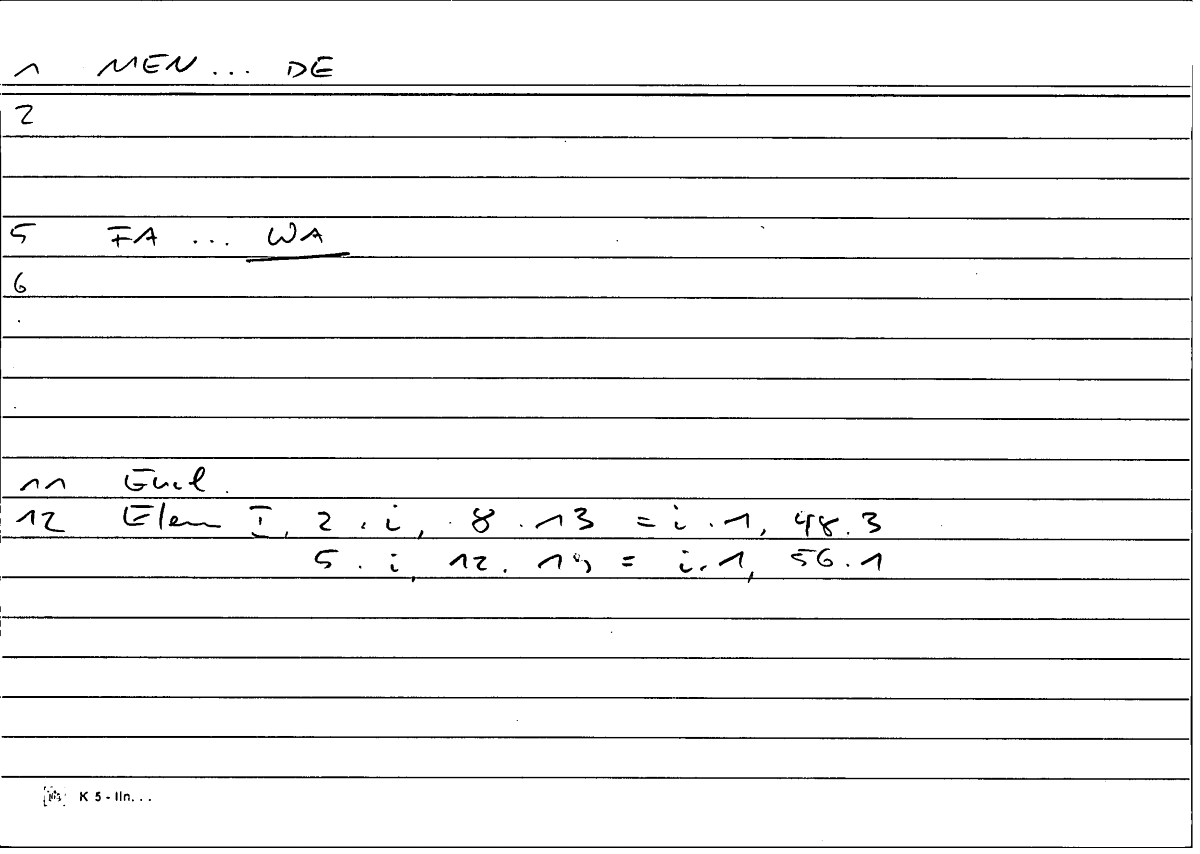 1 MEN... DE
2
5 FA ... WA
6
11 Eucl.
12 Elem I, 2. i, 8.13 = i.1, 48.3
5. i, 12. = i.1, 56.1
K 5 - lin...